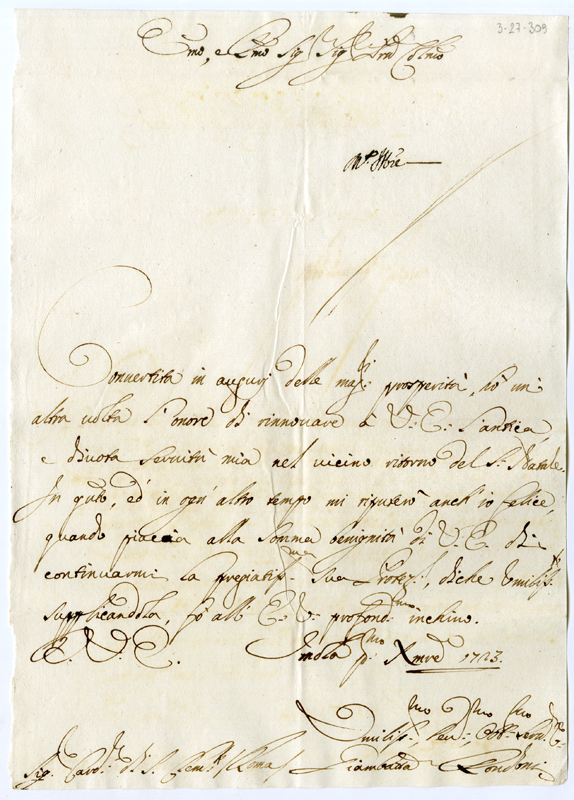 3-27-309
Emo, e Rmo Sig. Sig. Prnẽ Colmo
Convertita in augurj delle magi. prosperità, hò un'
altra volta l'onore di rinnovare à V. E. l'antica,
e divota servitù mia nel vicino ritorno del S. Natale.
In qto, ed' in ogn' altro tempo mi riputerò anch' io felice,
quando piaccia alla somma benignità di V. E. di
continuarmi la pregiatissma Sua Protez., di che umilisste
supplicandola, fò all' E. V. profondmo inchino.
D. V. E. Imola pmo Xmre 1723.
Umilissmo, Devmo, Obbmo Servre
Sig. Card. di S. Clemte /Roma/ Giambatta